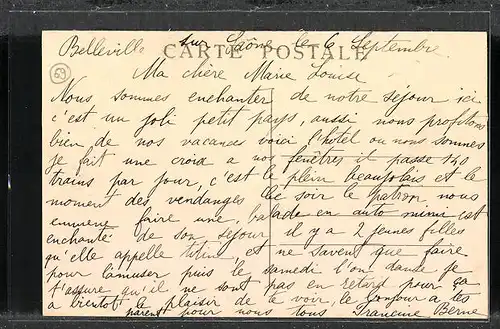 Belleville sur Saône le 6 Septembre
CARTE POSTALE
59
Ma chère Marie Louise
Nous sommes enchanter de notre séjour ici
c'est un joli petit pays, aussi nous profitons
bien de nos vacances voici l'hotel ou nous sommes
je fait une croix a nos fenêtres il passe 140
trains par jour, c'est le plein beaujolais et le
moment des vendanges ce soir le patron nous
emmene faire une balade en auto mimi est
enchanté de son séjour il y a 2 jeunes filles
qu'elle appelle titine, et ne savent que faire
pour l'amuser puis le samedi l'on danse je
t'assure qu'il ne sont pas en retard pour ça
a bientot le plaisir de te voir, le bonjour a tes
parents pour nous tous Francine Berne